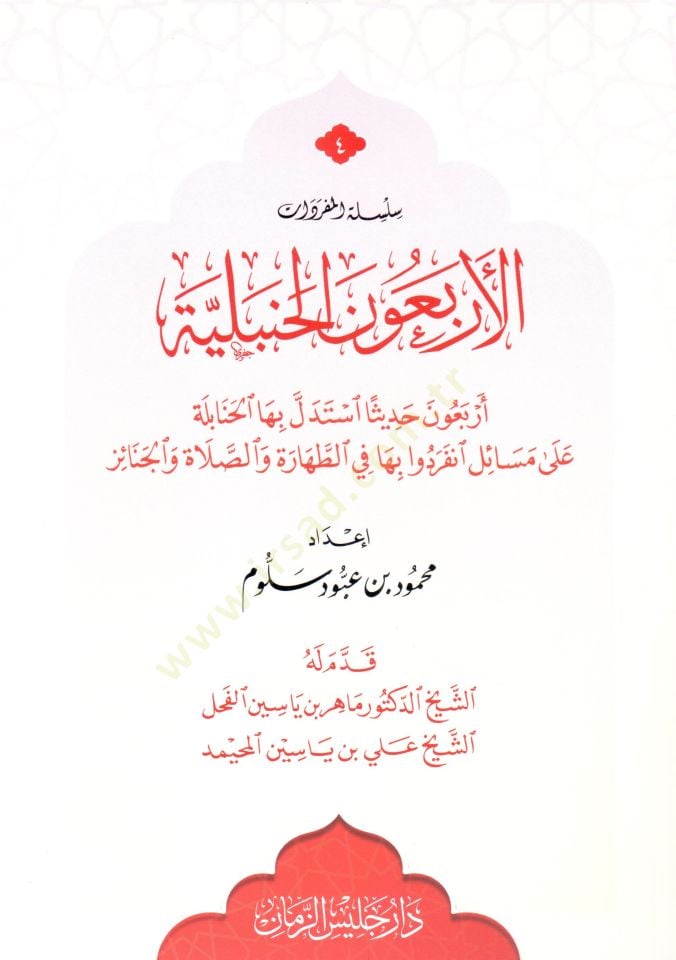 ٤
سلسلة المفردات
الأربعون الحنبلية
أَرْبَعُونَ حَدِيثًا اسْتَدَلَّ بِهَا الْحَنَابِلَة
عَلَى مَسَائِل انْفَرَدُوا بِهَا فِي الطَّهَارَة وَالصَّلَاة وَالْجَنَائِز
إعْدَاد
محمُود بن عبُّود سَلُّوم
قَدَّمَ لَهُ
الشَّيْخ الدكتُور مَاهِر بن يَاسِين الفَحل
الشَّيْخ عَلي بن يَاسِين المحَيمد
دَار جَليس الزَّمان
www.irsad.com.tr